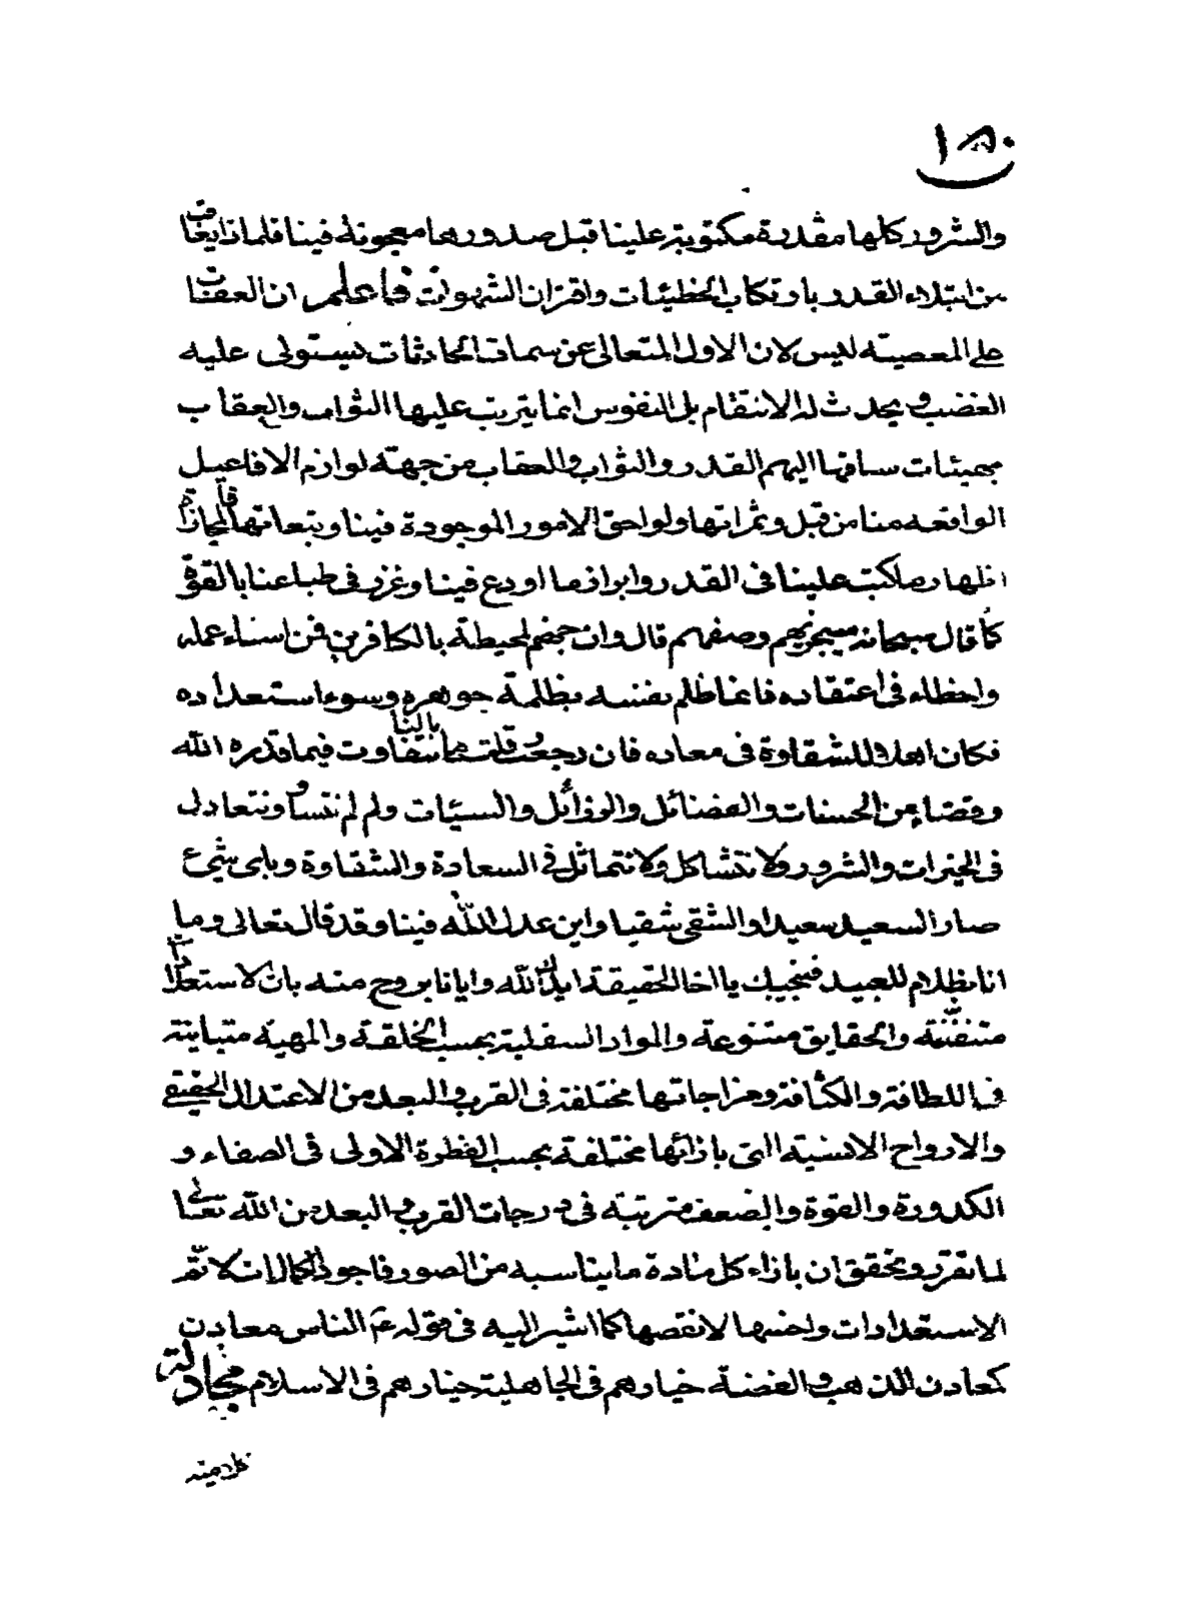 ١٥٠
والشرور كلها مقدرة مكتوبة علينا قبل صدورها معجونة فينا فلماذا يعاقب
من ابتلاه القدر بارتكاب الخطيئات واقتران الشهوات فاعلم ان العقاب
على المعصيته ليس لان الاول المتعالى عن سمات الحادثات يستولى عليه
الغضب ويحدث له الانتقام بل النفوس انما يترتب عليها الثواب والعقاب
بهيئات ساقها اليهم القدر والثواب والعقاب من جهته لوازم الافاعيل
الواقعه منا من قبل وثمراتها ولواحق الامور الموجودة فينا وتبعاتها فالمجازاة
اظهار ما كتب علينا فى القدر وابراز ما اودع فينا وغرز فى طباعنا بالقوة
كما قال سبحانه سيجزيهم وصفهم قال وان جهنم لمحيطة بالكافرين فمن اساء عمله
واخطاء فى اعتقاده فانما ظلم نفسه بظلمة جوهره وسوء استعداده
فكان اهلا للشقاوة فى معاده فان رجعت وقلت ما بالنا نتفاوت فيما قدره الله
وقضاء من الحسنات والفضائل والرذائل والسيئات ولم لم نتساو ونتعادل
فى الخيرات والشرور ولا نتشاكل ولا نتماثل فى السعادة والشقاوة وباى شيئ
صار السعيد سعيدا والشقى شقيا واين عدل الله فينا وقد قال تعالى وما
انا بظلام للعبيد فنجيبك يا اخا الحقيقة ايدك الله وايانا بروح منه بان الاستعدادات
متفننة والحقايق متنوعة والمواد السفلية بحسب الخلقة والمهية متباينة
فى اللطافة والكثافة ومزاجاتها مختلفة فى القرب والبعد من الاعتدال الحقيقى
والارواح الانسية التى بازائها مختلفة بحسب الفطرة الاولى فى الصفاء و
الكدورة والقوة والضعف مترتبة فى درجات القرب والبعد من الله تعالى
لما تقرر وتحقق ان بازاء كل مادة ما يناسبه من الصور فاجود الكمالات لاتم
الاستعدادات واخسها لانقصها كما اشير اليه فى قوله عم الناس معادن
كمعادن الذهب والفضة خيارهم فى الجاهلية خيارهم فى الاسلام مجادلة